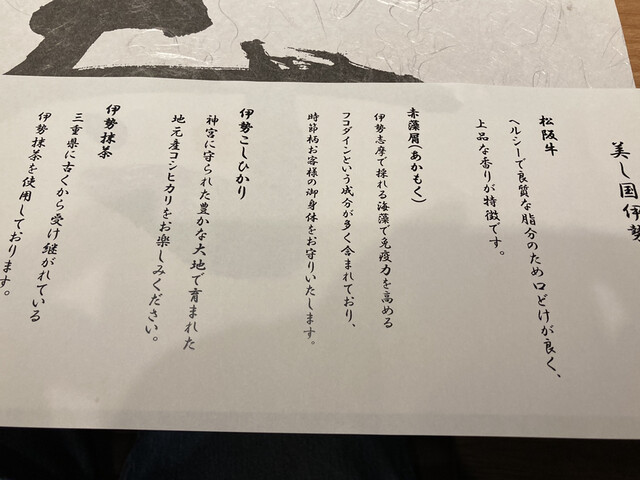 美し国伊勢
松阪牛
ヘルシーで良質な脂分のため口どけが良く、
上品な香りが特徴です。
赤藻屑(あかもく)
伊勢志摩で採れる海藻で免疫力を高める
フコダインという成分が多く含まれており、
時節柄お客様の御身体をお守りいたします。
伊勢こしひかり
神宮に守られた豊かな大地で育まれた
地元産コシヒカリをお楽しみください。
伊勢抹茶
三重県に古くから受け継がれている
伊勢抹茶を使用しております。